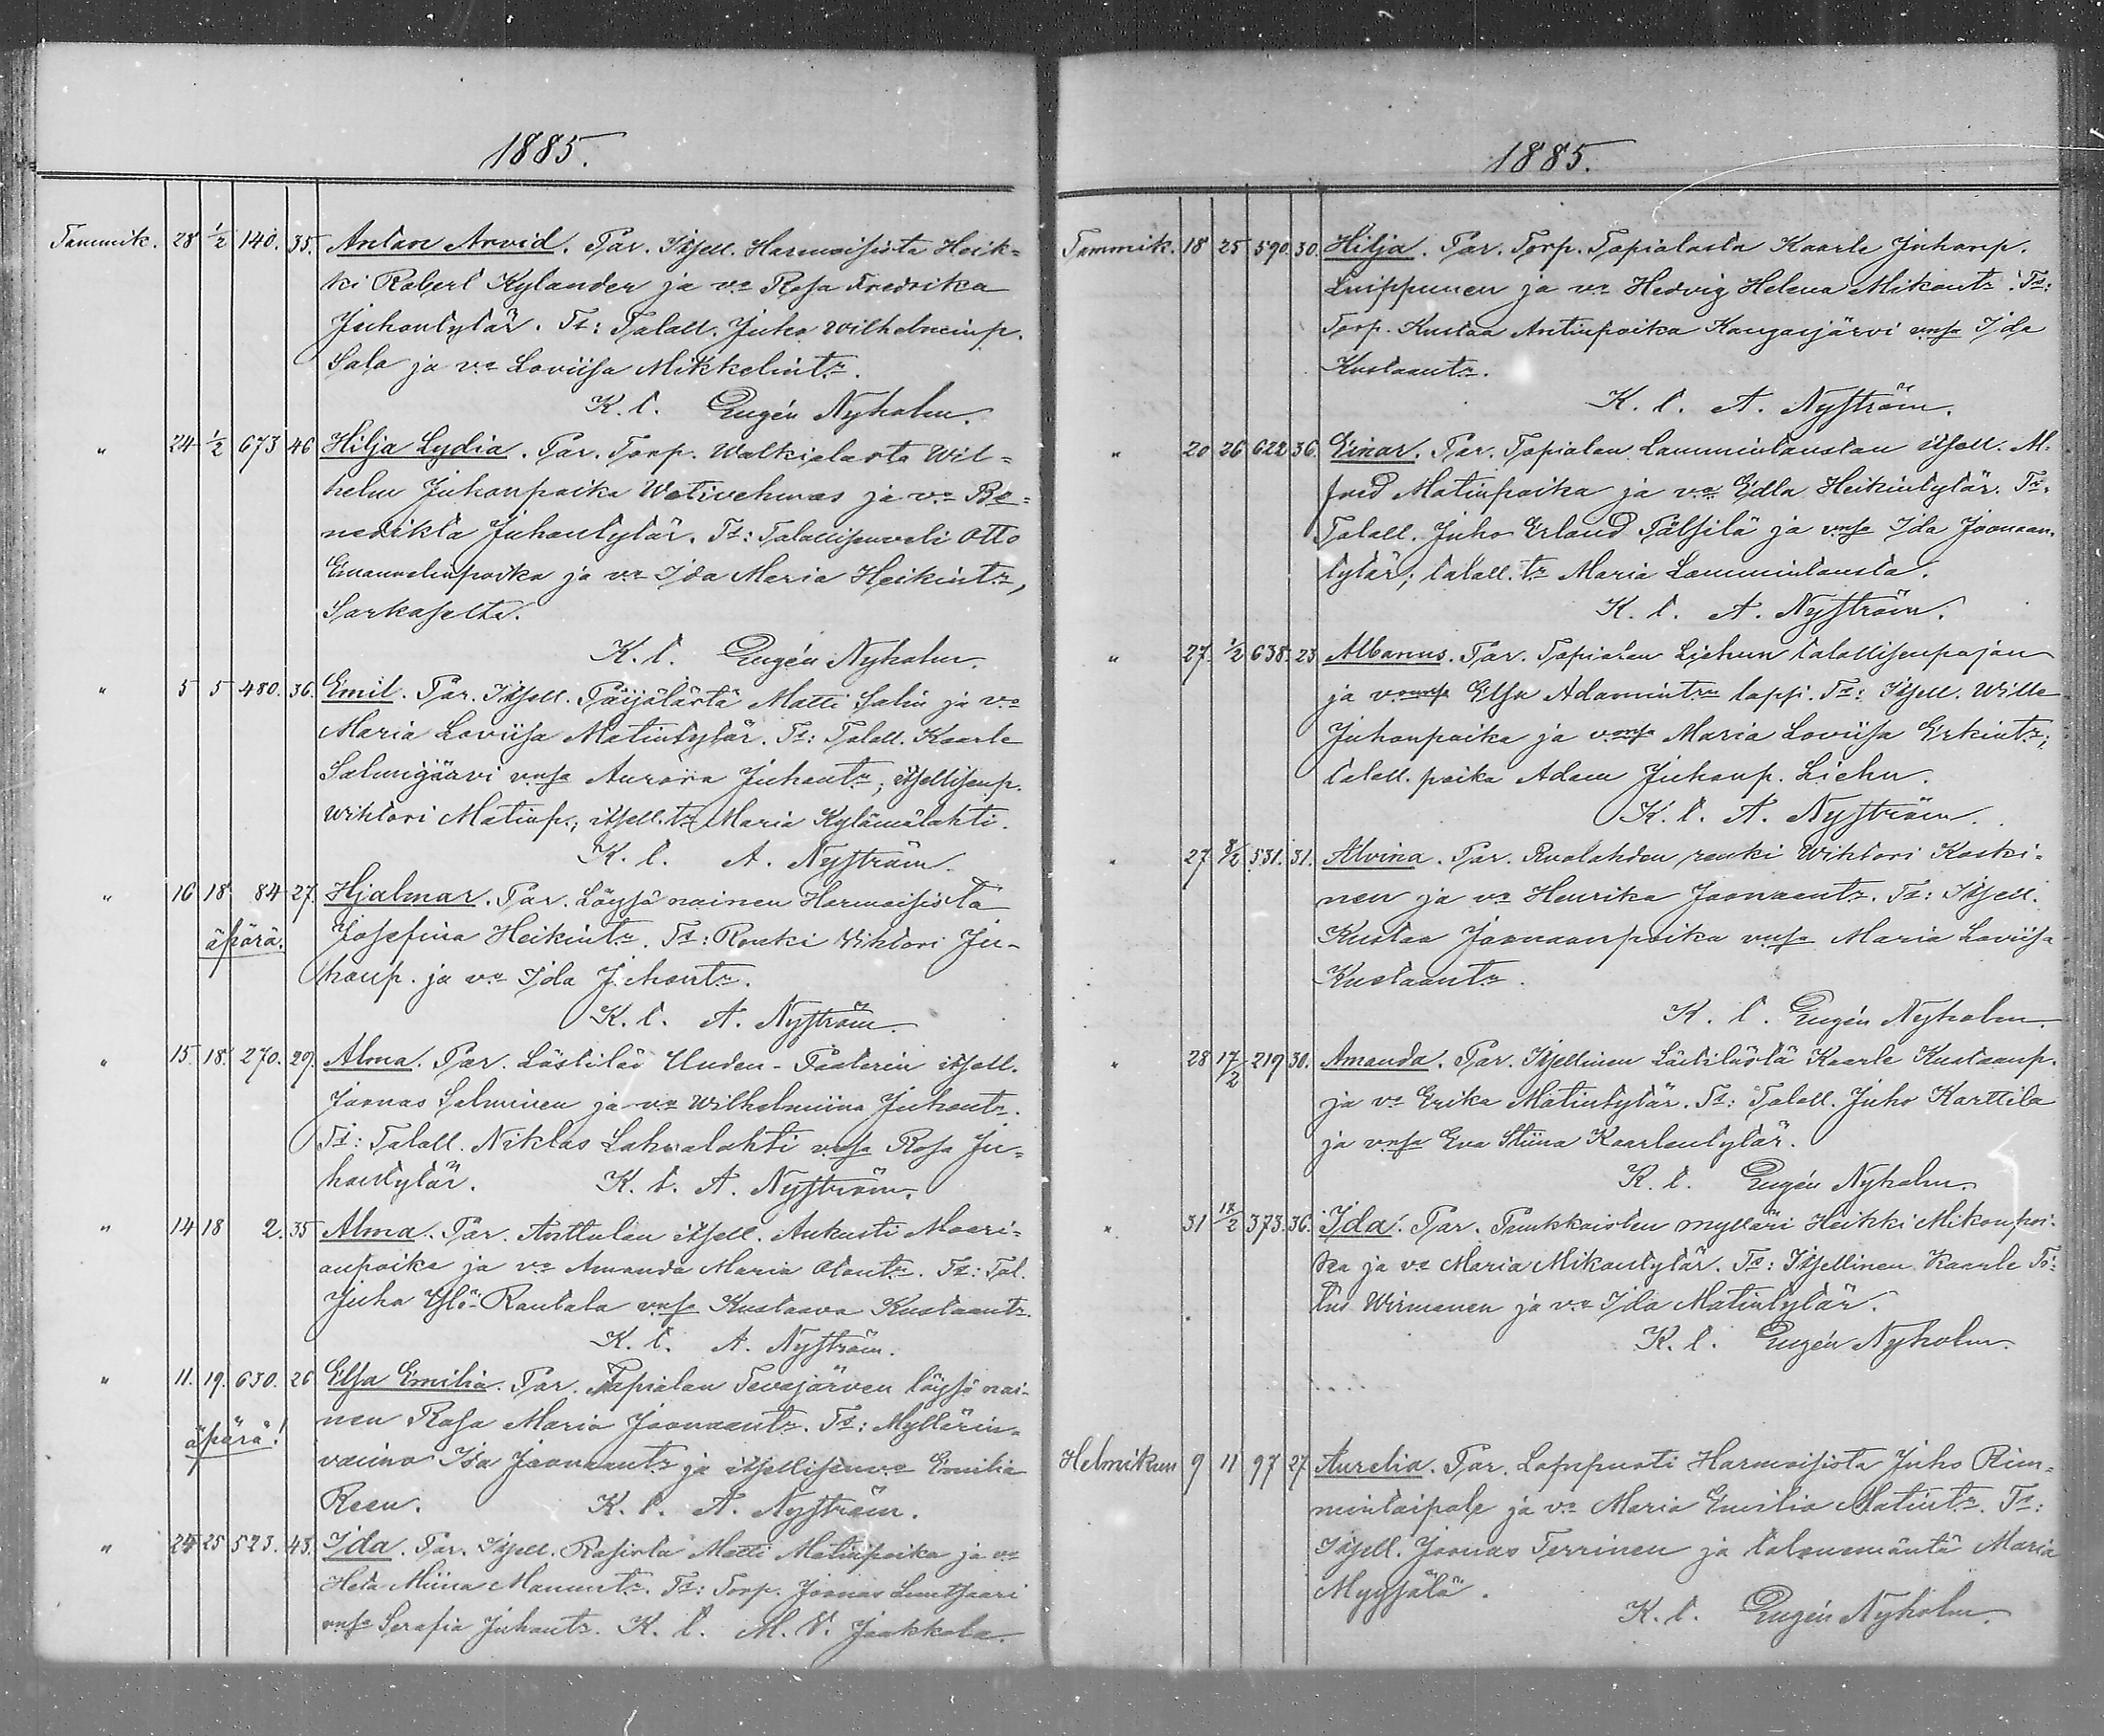 1885.
Tammik. 28 1/2 140. 35. Anton Arvid. Par. Itsell. Harmoisista Heik=
ki Robert Kylander ja vo Rosa Fredrika
Juhontytär. Ts: Talall. Juho Wilhelminp.
Sala ja vo Loviisa Mikkelintr.
K. t. Eugén Nyholm.
" 24 1/2 673 46 Hilja Lydia. Par. Torp. Walkialasta Wil=
helm Juhonpoika Wativehmas ja vo Be=
nedikta Juhontytär. Ts: Talollisenveli Otto
Emanuelinpoika ja vo Ida Maria Heikintr,
Sarkaselta.
K. t. Eugén Nyholm.
" 5 5 480. 36. Emil. Par. Itsell. Päijälästä Matti Salin ja vo
Maria Loviisa Matintytär. Ts: Talall. Kaarle
Salmijärvi vnsa Aurora Juhontr; itsellisenp.
Wihtori Matinp.; itsell. tr Maria Kylämälahti.
K. t. A. Nyström.
" 16 18 84 27. Hjalmar. Par. Löysä nainen Harmoisista
äpärä. Josefina Heikintr. Ts: Renki Wihtori Ju-
honp. ja vo Ida Juhontr.
K. t. A. Nyström.
" 15. 18. 270. 29. Alma. Par. Lästilän Uuden-Paaterin itsell.
Joonas Salminen ja vo Wilhelmiina Juhontr.
Ts: Talall. Niklas Lahnalahti vnsa Rosa Ju=
hontytär. K. t. A. Nyström.
" 14 18 2. 35 Alma. Par. Anttulan itsell. Aukusti Maari=
anpoika ja vo Amanda Maria Olantr. Ts: Tal.
Juha Ylö-Rautala vnsa Kustaava Kustaantr.
K. t. A. Nyström.
" 11. 19. 630. 26 Elsa Emilia. Par. Tapialan Tevajärven löysä nai-
äpärä! nen Rosa Maria Joonaantr. Ts: Myllärin-
vaimo Ida Joonaantr ja itsellisenvo Emilia
Reen. K. t. A. Nyström.
" 24 25 523. 43. Ida. Par. Itsell. Rasista Matti Matinpoika ja vo
Heta Miina Mannntr. Ts: Torp. Joonas
vnsa Serafia Juhontr. K. t. M. V. Jaakkola.
1885.
Tammik. 18 25 590. 30. Hilja. Par. Torp. Tapialasta Kaarle Juhonp.
Luippunen ja vo Hedvig Helena Mikontr. Ts:
Torp. Kustaa Antinpoika Kangasjärvi vnsa Ida
Kustaantr.
K. t. A. Nyström.
" 20 26 622 36. Einar. Par. Tapialan Lammintaustan itsell. Al-
fred Matinpoika ja vo Edla Heikintytär. Ts.
Talall. Juho Erland Pätsilä ja vnsa Ida Joonaan-
tytär; talall. tr Maria Lammintausta.
K. t. A. Nyström.
" 27. 1/2 638. 23 Albanus. Par. Tapialan Liehun talollisenpojan
ja vaimonsa Elsa Adamintrn lapsi. Ts: Itsell. Wille
Juhonpoika ja vonsa Maria Loviisa Erkintr;
talall. poika Adam Juhonp. Liehu.
K. t. A. Nyström.
" 27 8/2 531. 31. Alvina. Par. Ruolahden renki Wihtori Koski=
nen ja vo Henrika Joonaantr. Ts: Itsell.
Kustaa Joonaanpoika vnsa Maria Loviisa
Kustaantr.
K. t. Eugén Nyholm.
" 28 17/2 219 30. Amanda. Par. Itsellinen Lästilästä Kaarle Kustaanp.
ja vo Erika Matintytär. Ts: Talall. Juho Karttila
ja vnsa Eva Stiina Kaarlentytär.
K. t. Eugén Nyholm.
" 31 17/2 373. 36. Ida. Par. Puukkoisten mylläri Heikki Mikonpoi-
ka ja vo Maria Mikontytär. Ts: Itsellinen Kaarle Ti-
tus Wirmanen ja vo Ida Matintytär.
K. t. Eugén Nyholm.
Helmikuu 9 11 97 27 Aurelia. Par. Harmoisista Juho Rim-
mintaipale ja vo Maria Emilia Matintr. Ts:
Itsell. Joonas Terrinen ja talonemäntä Maria
Myysälä.
K. t. Eugén Nyholm.